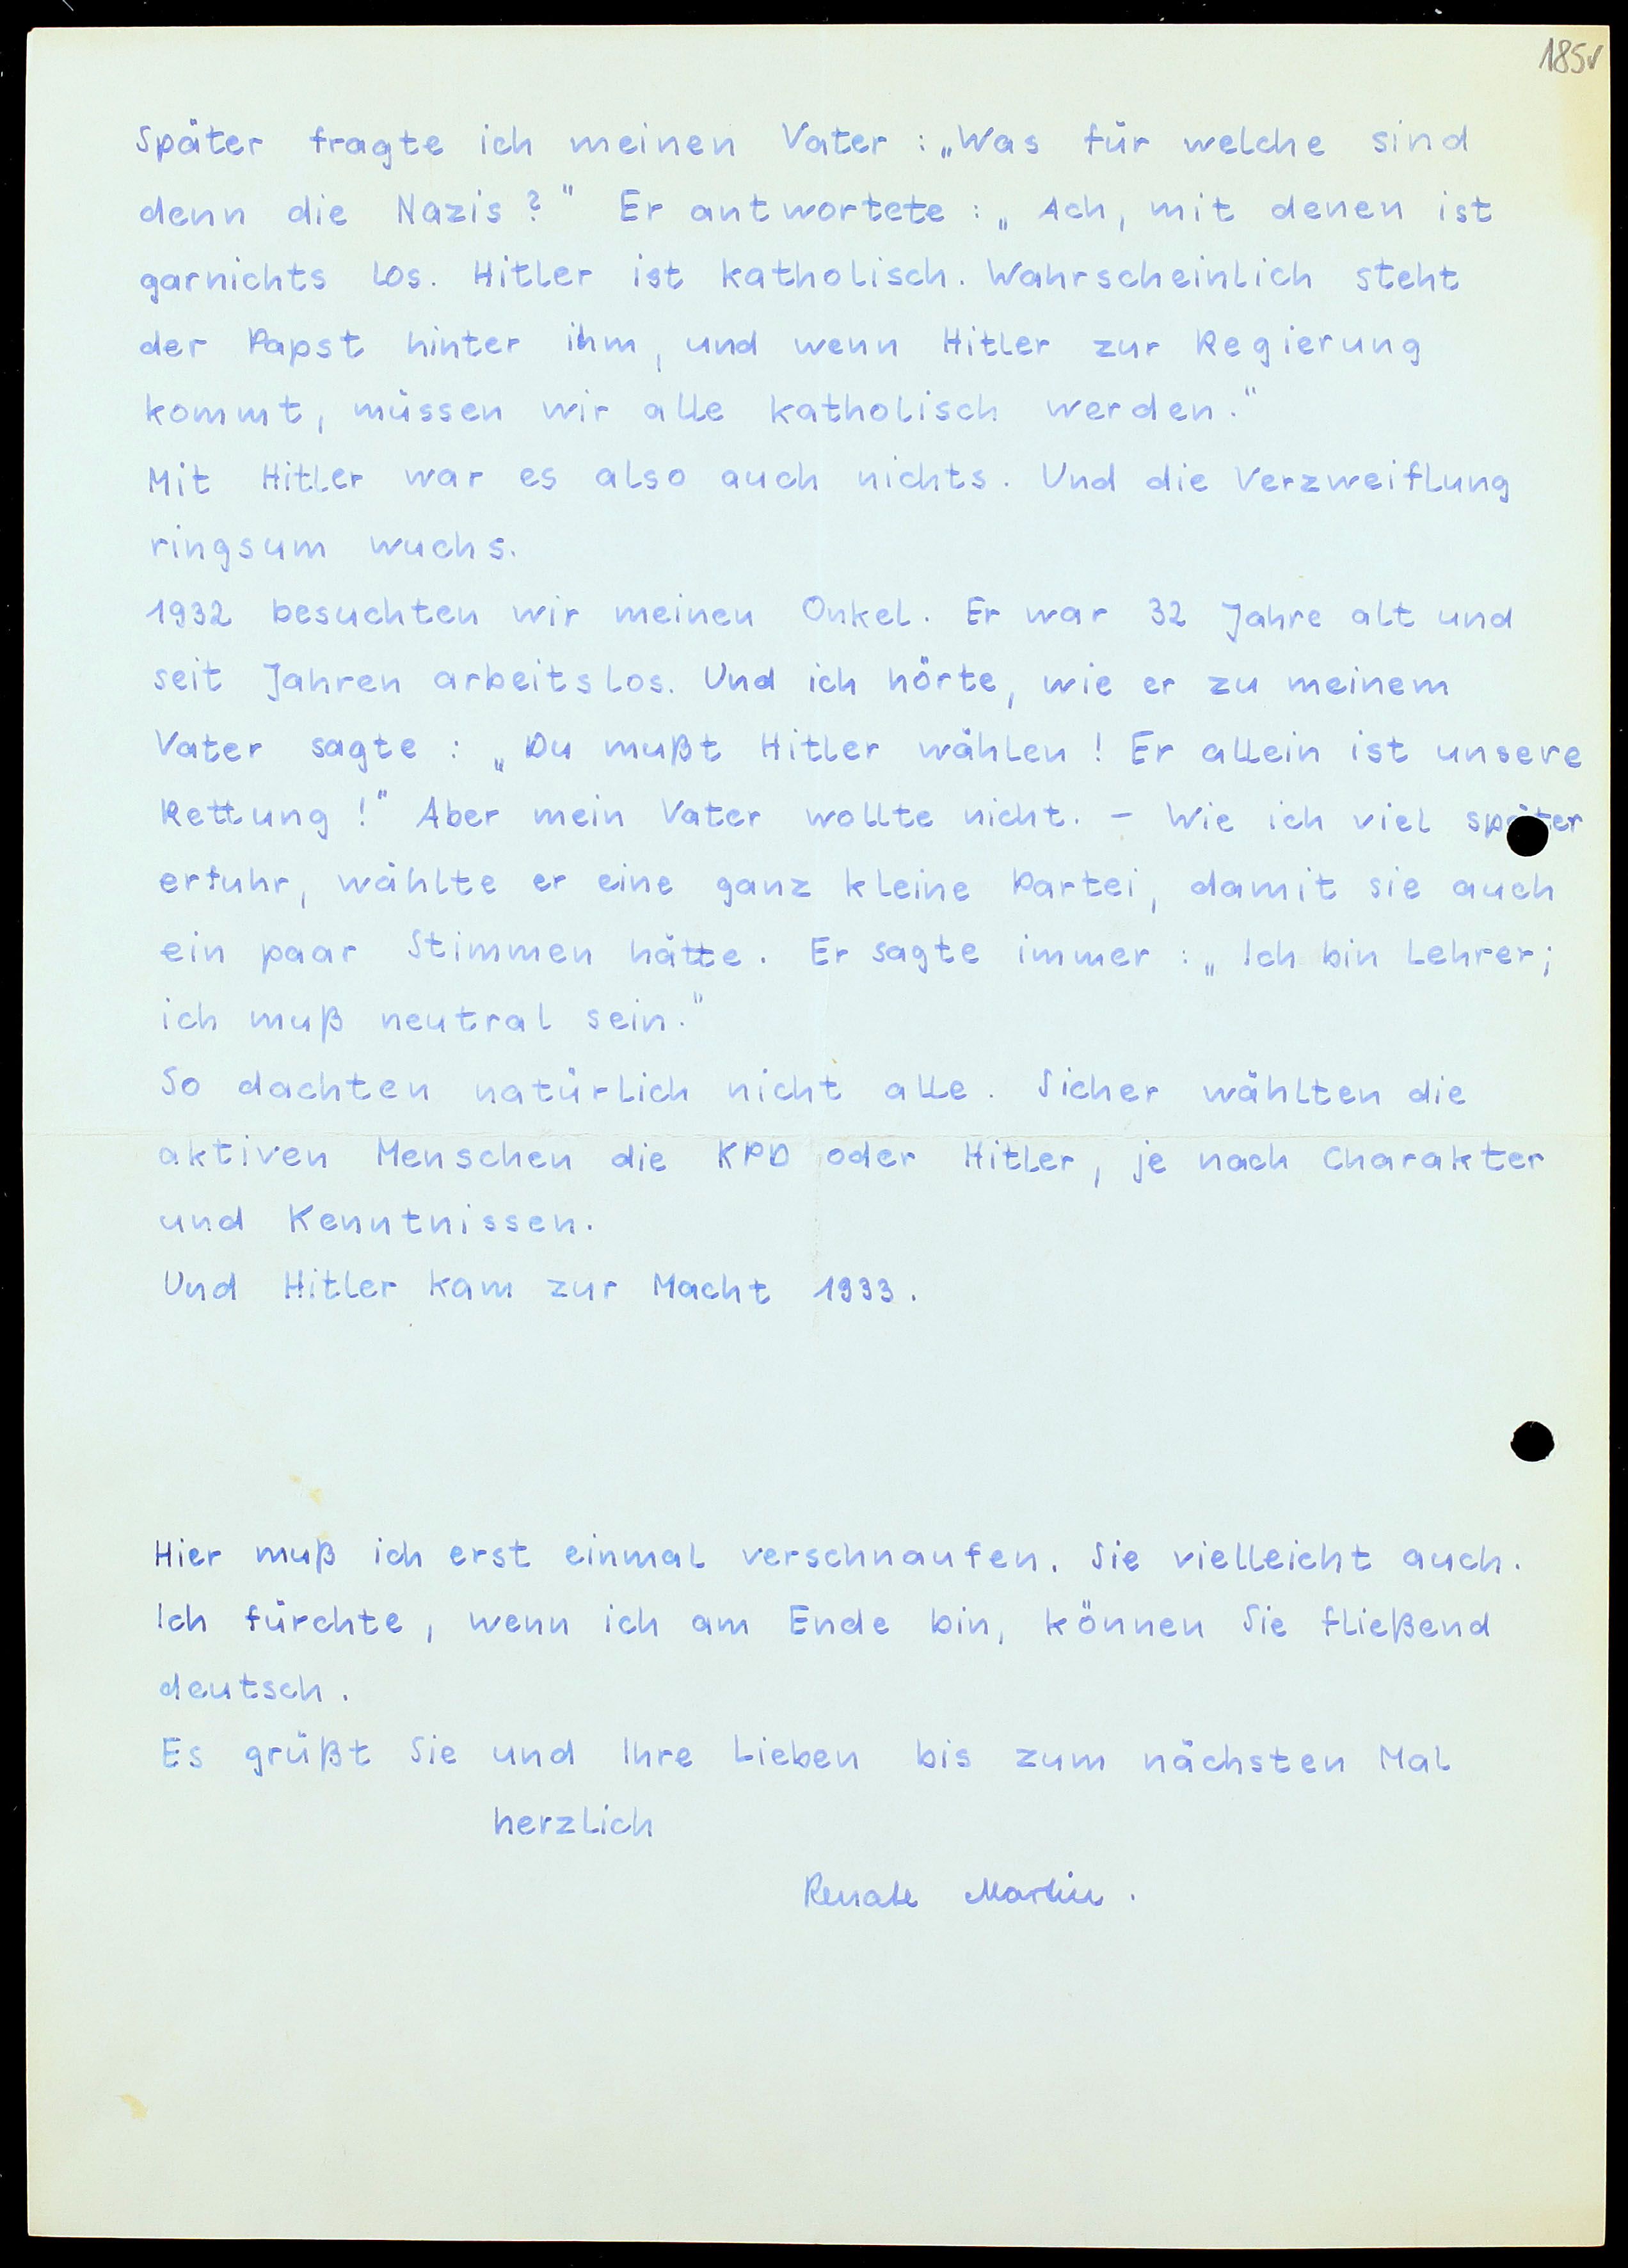 185v
Später fragte ich meinen Vater : „Was für welche sind
denn die Nazis ?" Er antwortete : „Ach, mit denen ist
garnichts los. Hitler ist katholisch. Wahrscheinlich steht
der Papst hinter ihm, und wenn Hitler zur Regierung
kommt, müssen wir alle katholisch werden."
Mit Hitler war es also auch nichts. Und die Verzweiflung
ringsum wuchs.
1932 besuchten wir meinen Onkel. Er war 32 Jahre alt und
seit Jahren arbeitslos. Und ich hörte, wie er zu meinem
Vater sagte : „Du mußt Hitler wählen ! Er allein ist unsere
Rettung !" Aber mein Vater wollte nicht. – Wie ich viel später
erfuhr, wählte er eine ganz kleine Partei, damit sie auch
ein paar Stimmen hätte. Er sagte immer : „Ich bin Lehrer;
ich muß neutral sein."
So dachten natürlich nicht alle. Sicher wählten die
aktiven Menschen die KPD oder Hitler, je nach Charakter
und Kenntnissen.
Und Hitler kam zur Macht 1933.
Hier muß ich erst einmal verschnaufen. Sie vielleicht auch.
Ich fürchte, wenn ich am Ende bin, können Sie fließend
deutsch.
Es grüßt Sie und Ihre Lieben bis zum nächsten Mal
herzlich
Renate Martin.